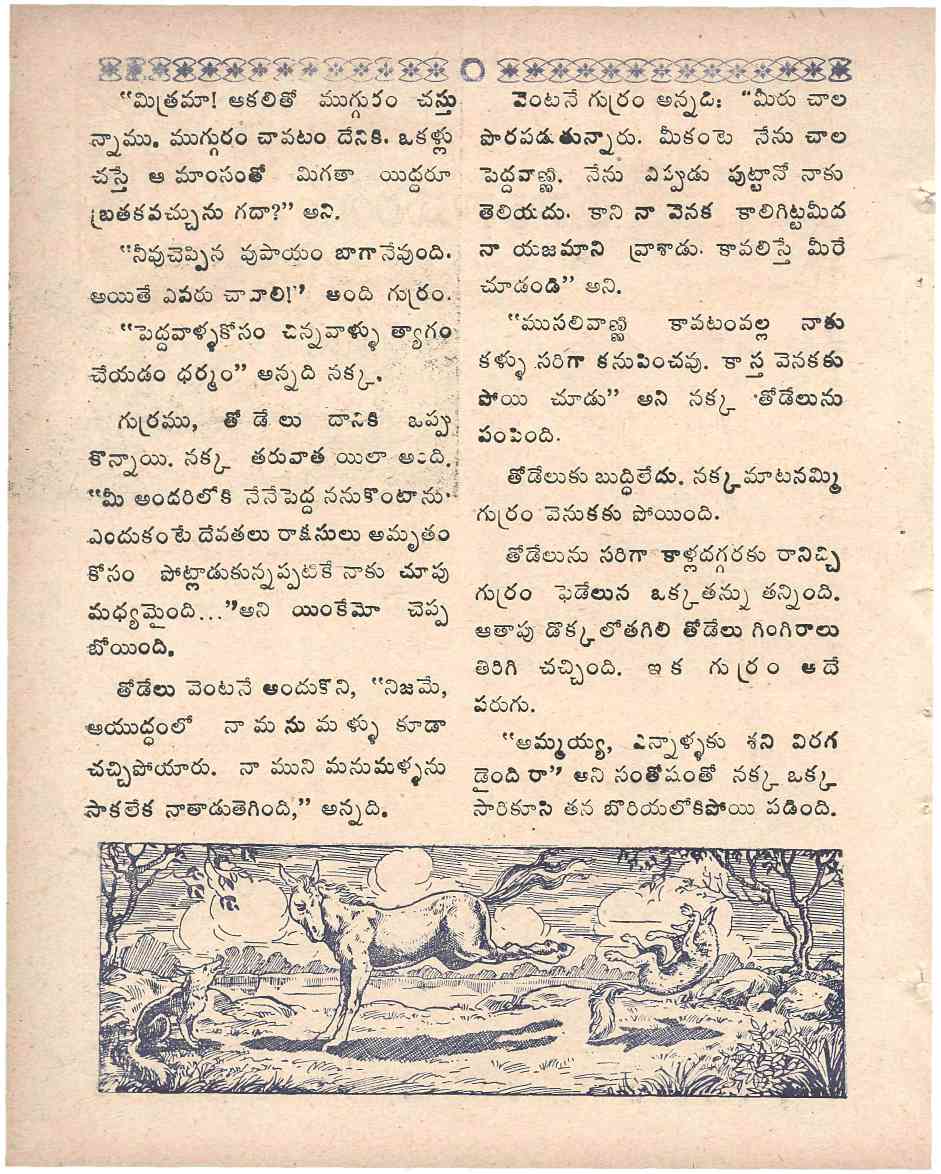 “మిత్రమా! ఆకలితో ముగ్గురం చస్తు
న్నాము. ముగ్గురం చావటం దేనికి. ఒకళ్లు
చస్తే ఆ మాంసంతో మిగతా యిద్దరూ
బ్రతకవచ్చును గదా?” అని.
“నీవుచెప్పిన వుపాయం బాగానేవుంది.
అయితే ఎవరు చావాలి!” అంది గుర్రం.
“పెద్దవాళ్ళకోసం చిన్నవాళ్ళు త్యాగం
చేయడం ధర్మం” అన్నది నక్క.
గుర్రము, తోడేలు దానికి ఒప్పు
కొన్నాయి. నక్క తరువాత యిలా అంది.
“మీ అందరిలోకి నేనేపెద్ద ననుకొంటాను.
ఎందుకంటే దేవతలు రాక్షసులు అమృతం
కోసం పోట్లాడుకున్నప్పటికే నాకు చూపు
మధ్యమైంది...”అని యింకేమో చెప్ప
బోయింది.
తోడేలు వెంటనే అందుకొని, “నిజమే,
ఆయుద్ధంలో నా మనుమళ్ళు కూడా
చచ్చిపోయారు. నా ముని మనుమళ్ళను
సాకలేక నాతాడుతెగింది,” అన్నది.
వెంటనే గుర్రం అన్నది: “మీరు చాల
పొరపడుతున్నారు. మీకంటె నేను చాల
పెద్దవాణ్ణి. నేను ఎప్పుడు పుట్టానో నాకు
తెలియదు. కాని నా వెనక కాలిగిట్టమీద
నా యజమాని వ్రాశాడు. కావలిస్తే మీరే
చూడండి” అని.
“ముసలివాణ్ణి కావటంవల్ల నాకు
కళ్ళు సరిగా కనుపించవు. కాస్త వెనకకు
పోయి చూడు” అని నక్క తోడేలును
పంపింది.
తోడేలుకు బుద్ధిలేదు. నక్కమాటనమ్మి
గుర్రం వెనుకకు పోయింది.
తోడేలును సరిగా కాళ్లదగ్గరకు రానిచ్చి
గుర్రం ఫెడేలున ఒక్కతన్ను తన్నింది.
ఆతాపు డొక్కలోతగిలి తోడేలు గింగిరాలు
తిరిగి చచ్చింది. ఇక గుర్రం అదే
పరుగు.
“అమ్మయ్య, ఎన్నాళ్ళకు శని విరగ
డైంది రా” అని సంతోషంతో నక్క ఒక్క
సారికూసి తన బొరియలోకిపోయి పడింది.